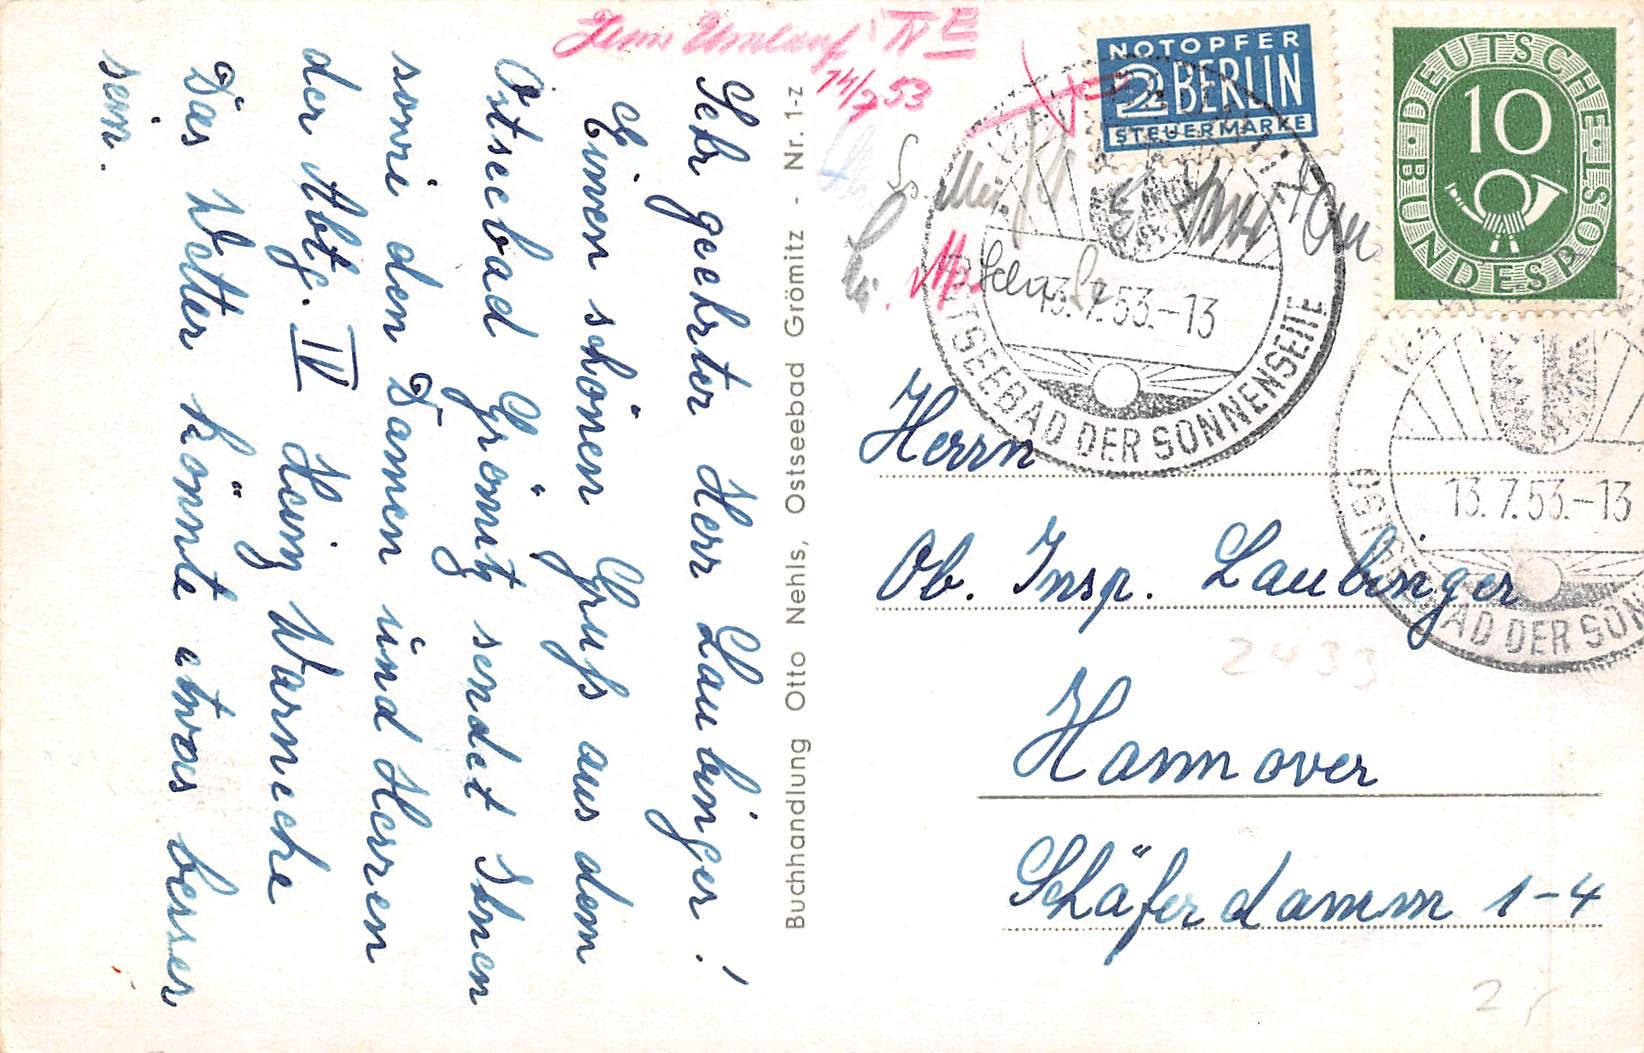 Sehr geehrter Herr Laubinger!
Einen schönen Gruß aus dem
Ostseebad Grömitz sendet Ihnen
sowie den Damen und Herren
der Abtg. IV Heinz Warnecke
Das Wetter könnte etwas besser
sein.
Buchhandlung Otto Nehls, Ostseebad Grömitz - Nr. 1-z
Zum Umlauf IV E
14/7 53
NOTOPFER
2 BERLIN
STEUERMARKE
DEUTSCHE BUNDESPOST
10
13.7.53.-13
OSTSEEBAD DER SONNENSEITE
13.7.53.-13
OSTSEEBAD DER SON
Herrn
Ob. Insp. Laubinger
2433
Hannover
Schäferdamm 1-4